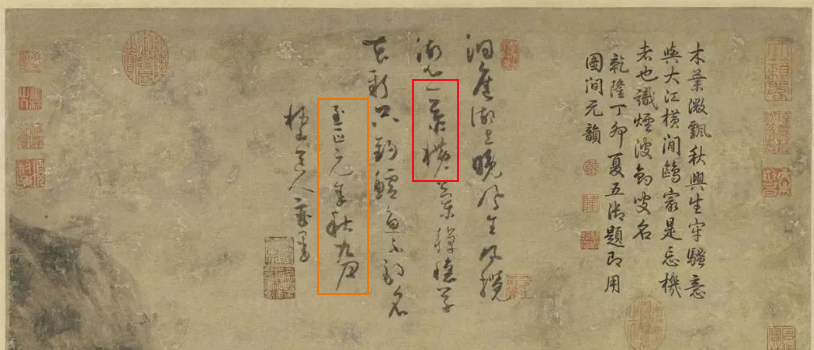 木葉微飄秋興生牢騷意
與大江橫閒鷗家是忘機
者也識煙波釣叟名
乾隆丁卯夏五御題即用
圖間元韻
洞庭湖上晚風生風攪
湖心一葉橫蘭棹穩草
衣新只釣鱸魚不釣名
至正元年秋九月
梅道人戲墨